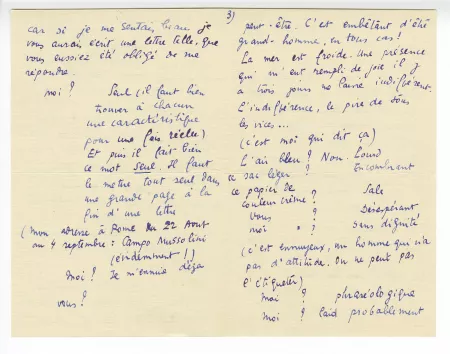 car si je me sentais beau je
vous aurais écrit une lettre telle, que
vous eussiez été obligé de me
répondre.
moi ? Seul (il faut bien
trouver à chacun
une caractéristique
pour une fois réelle)
Et puis il fait bien
ce mot seul. Il faut
le mettre tout seul dans
une grande page à la
fin d'une lettre
(mon adresse à Rome du 22 Aout
au 4 septembre : Campo Mussolini
(évidemment !)
Moi ? Je m'ennuie déjà
vous ?
3)
peut-être. C'est embêtant d'être
grand-homme, en tous cas !
La mer est froide. Une présence
qui m'eut rempli de joie il y
a trois jours me laisse indifférent.
L'indifférence, le pire de tous
les vices...
(c'est moi qui dit ça)
L'air bleu ? Non. Lourd
ce sac léger ? Encombrant
ce papier de
couleur crème ? Sale
Vous ? Désespérant
moi " ? Sans dignité
(c'est ennuyeux, un homme qui n'a
pas d'attitude. On ne peut pas
l'étiqueter)
Moi ? phraséologique
Moi ? laid probablement